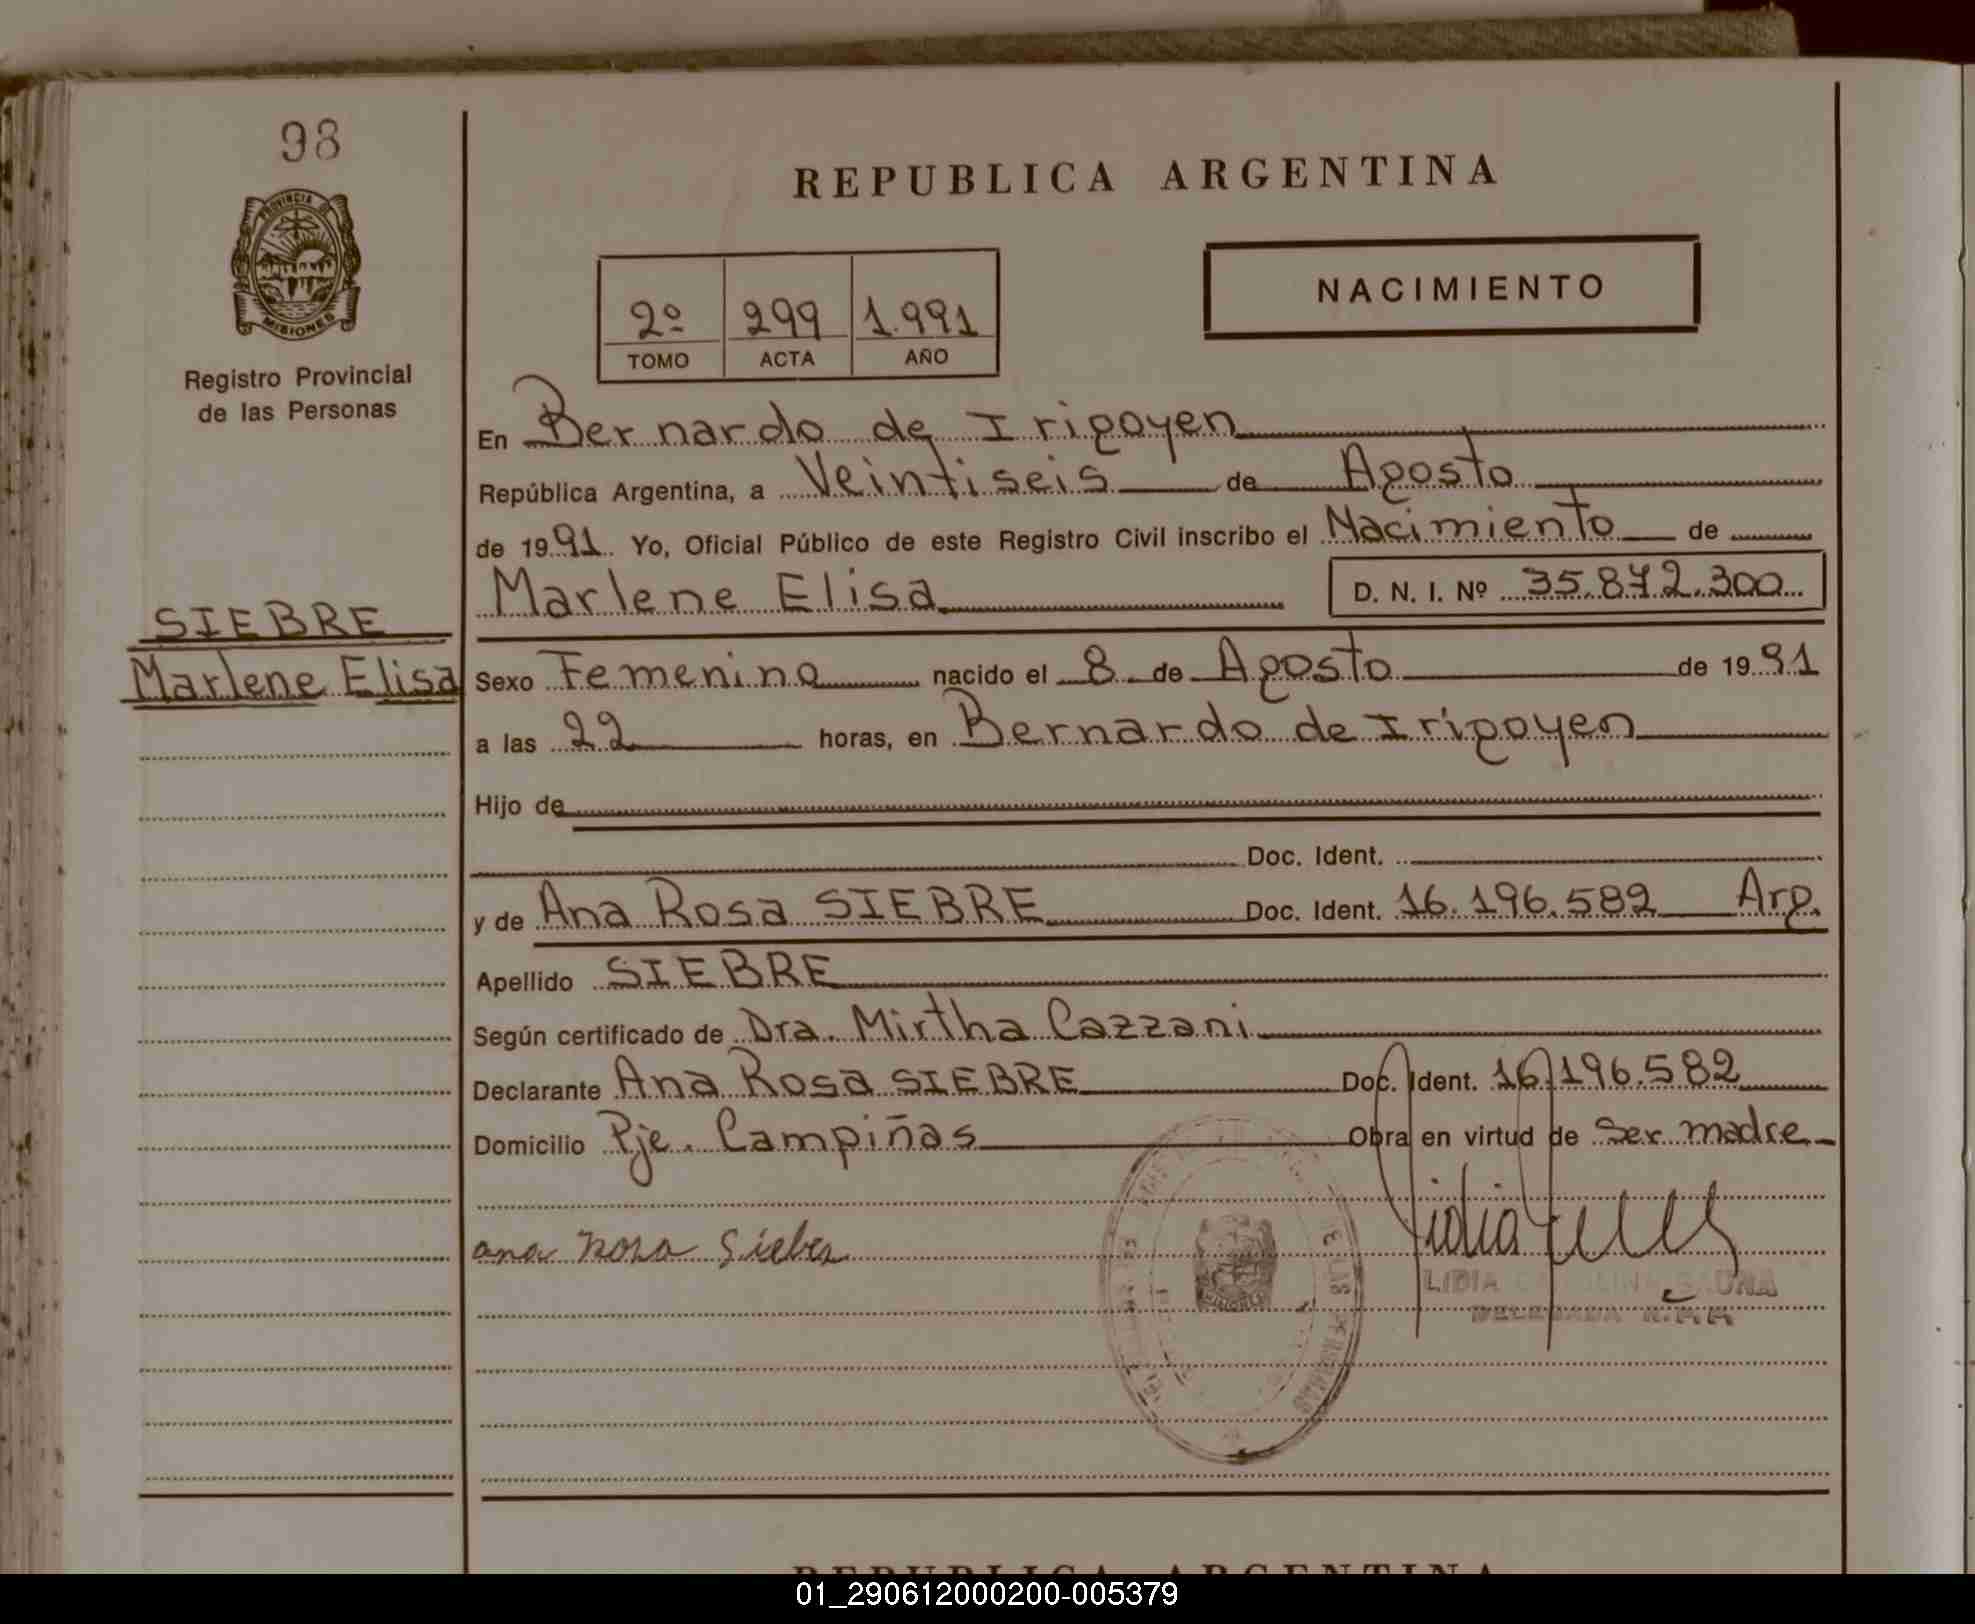 98
PROVINCIA DE
MISIONES
Registro Provincial
de las Personas
SIEBRE
Marlene Elisa
REPUBLICA ARGENTINA
2º 299 1.991
TOMO ACTA AÑO
NACIMIENTO
En Bernardo de Irigoyen
República Argentina, a Veintiseis de Agosto
de 1991 Yo, Oficial Público de este Registro Civil inscribo el Nacimiento de
Marlene Elisa D. N. I. Nº 35.872.300
Sexo Femenino nacido el 8 de Agosto de 1991
a las 22 horas, en Bernardo de Irigoyen
Hijo de
Doc. Ident.
y de Ana Rosa SIEBRE Doc. Ident. 16.196.582 Arg.
Apellido SIEBRE
Según certificado de Dra. Mirtha Cazzani
Declarante Ana Rosa SIEBRE Doc. Ident. 16.196.582
Domicilio Pje. Campiñas Obra en virtud de ser madre
ana rosa Siebre
MISIONES
LIDIA
DELEGADA
REPUBLICA ARGENTINA
01_290612000200-005379